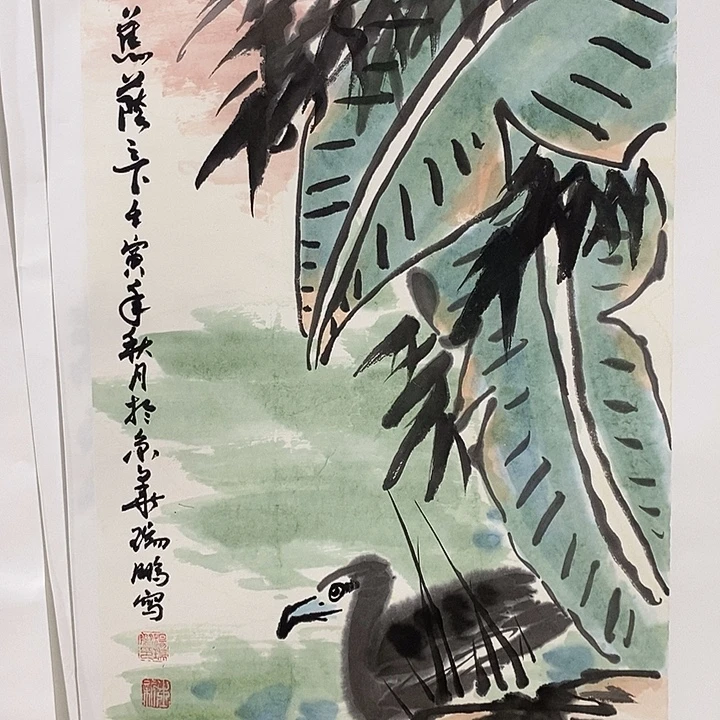 蕉蔭之下壬寅年秋月於京華瑞鹏寫